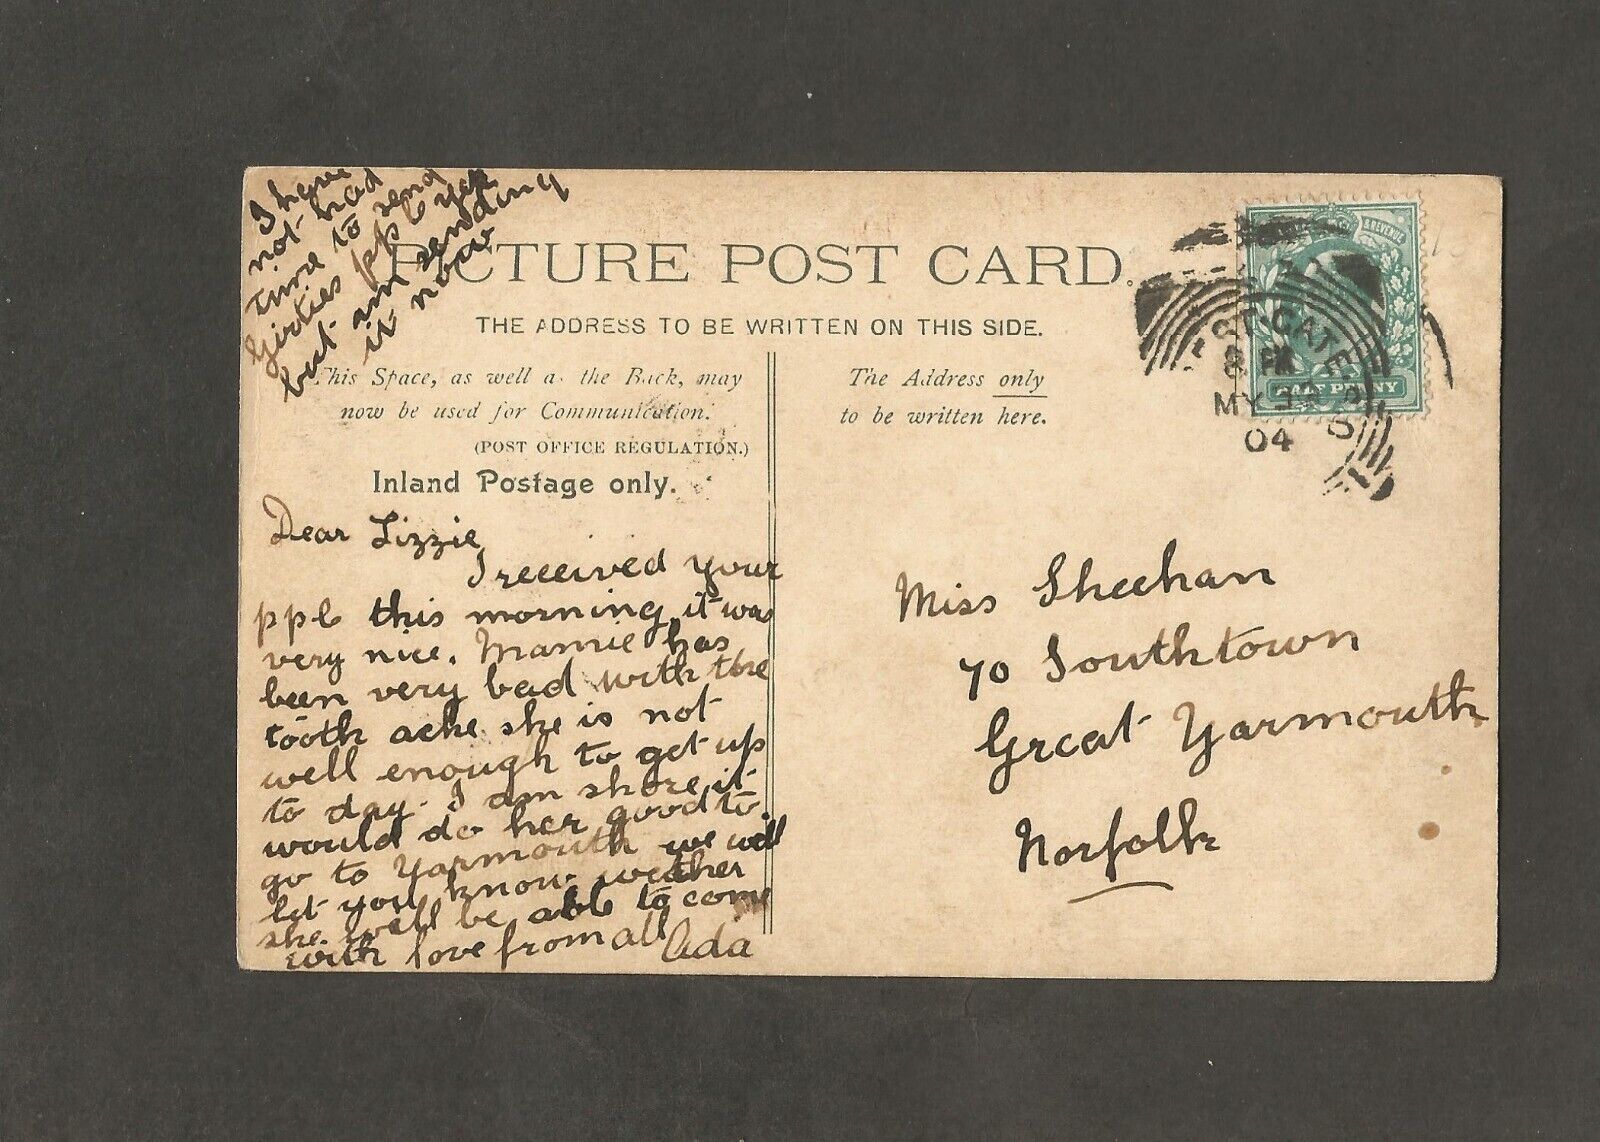 I have
not had
time to send
Girties ppc yet
but am sending
it now
PICTURE POST CARD.
THE ADDRESS TO BE WRITTEN ON THIS SIDE.
This Space, as well as the Back, may
now be used for Communication.
(POST OFFICE REGULATION.)
Inland Postage only.
The Address only
to be written here.
HALF PENNY
& REVENUE
8 PM
MY
04
Dear Lizzie
I received your
ppc this morning, it was
very nice. Mamie has
been very bad with the
tooth ache she is not
well enough to get up
to day. I am shore it
would do her good to
go to Yarmouth we will
let you know wether
she will be able to come
with love from all Ada
Miss Sheehan
70 Southtown
Great Yarmouth
Norfolk